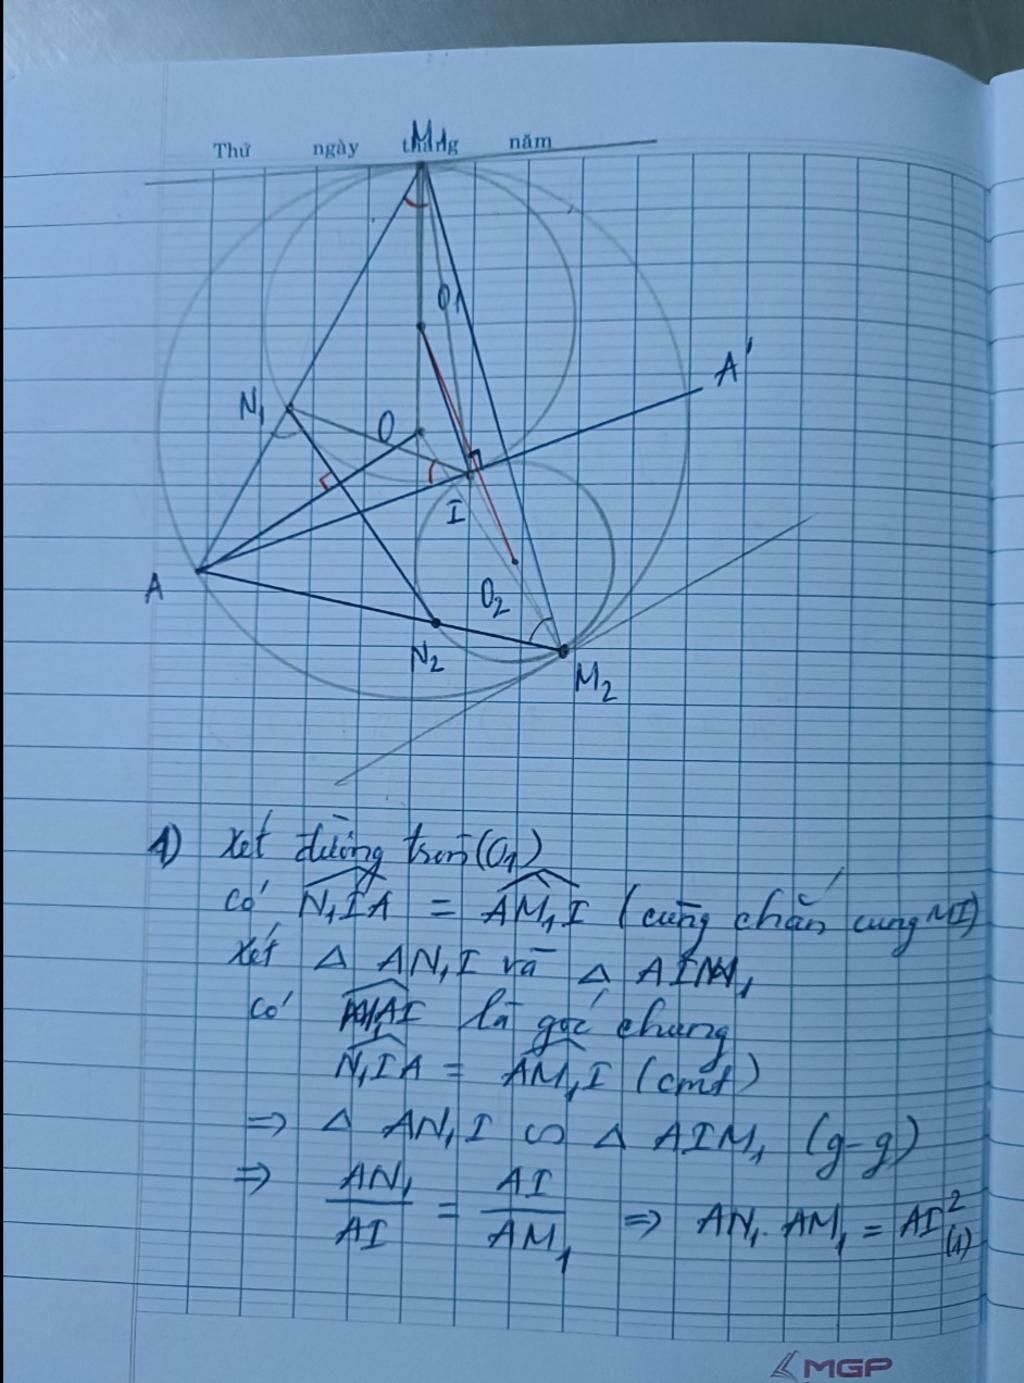 Thứ ngày tháng năm
M1
O1
A'
N1
O
I
A
O2
N2
M2
1) Xét đường tròn (O1)
có N1IA = AM1I (cùng chắn cung MI)
Xét Δ AN1I và Δ AIM1
có là góc chung
N1IA = AM1I (cmt)
=> Δ AN1I ∽ Δ AIM1 (g-g)
=> AN1/AI = AI/AM1 => AN1. AM1 = AI² (1)
MGP